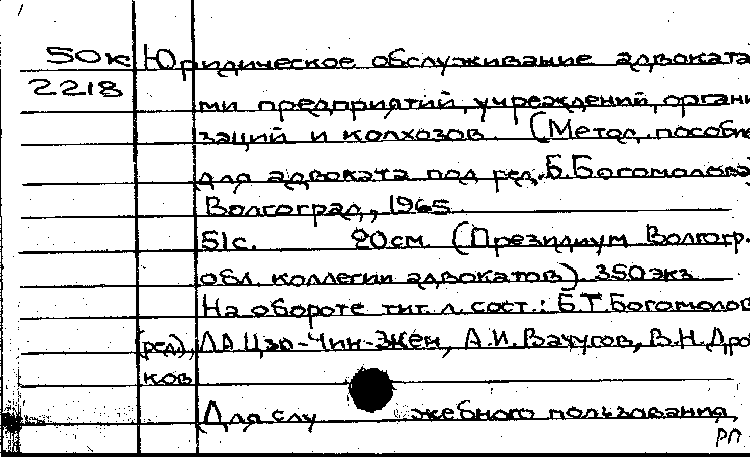 50к Юридическое обслуживание адвоката
2218 ми предприятий, учреждений, органи
заций и колхозов. (Метод. пособие
для адвоката под ред. Б. Богомолова
Волгоград, 1965
51с. 20см (Президиум Волгогр.
обл. коллегии адвокатов) 350 экз
На обороте тит. л. сост.: Б.Т. Богомолов
(ред), Л.А. Цзо-Чин-Жен, А.И. Вачугов, В.Н. Дро
ков
Для служебного пользования
РП